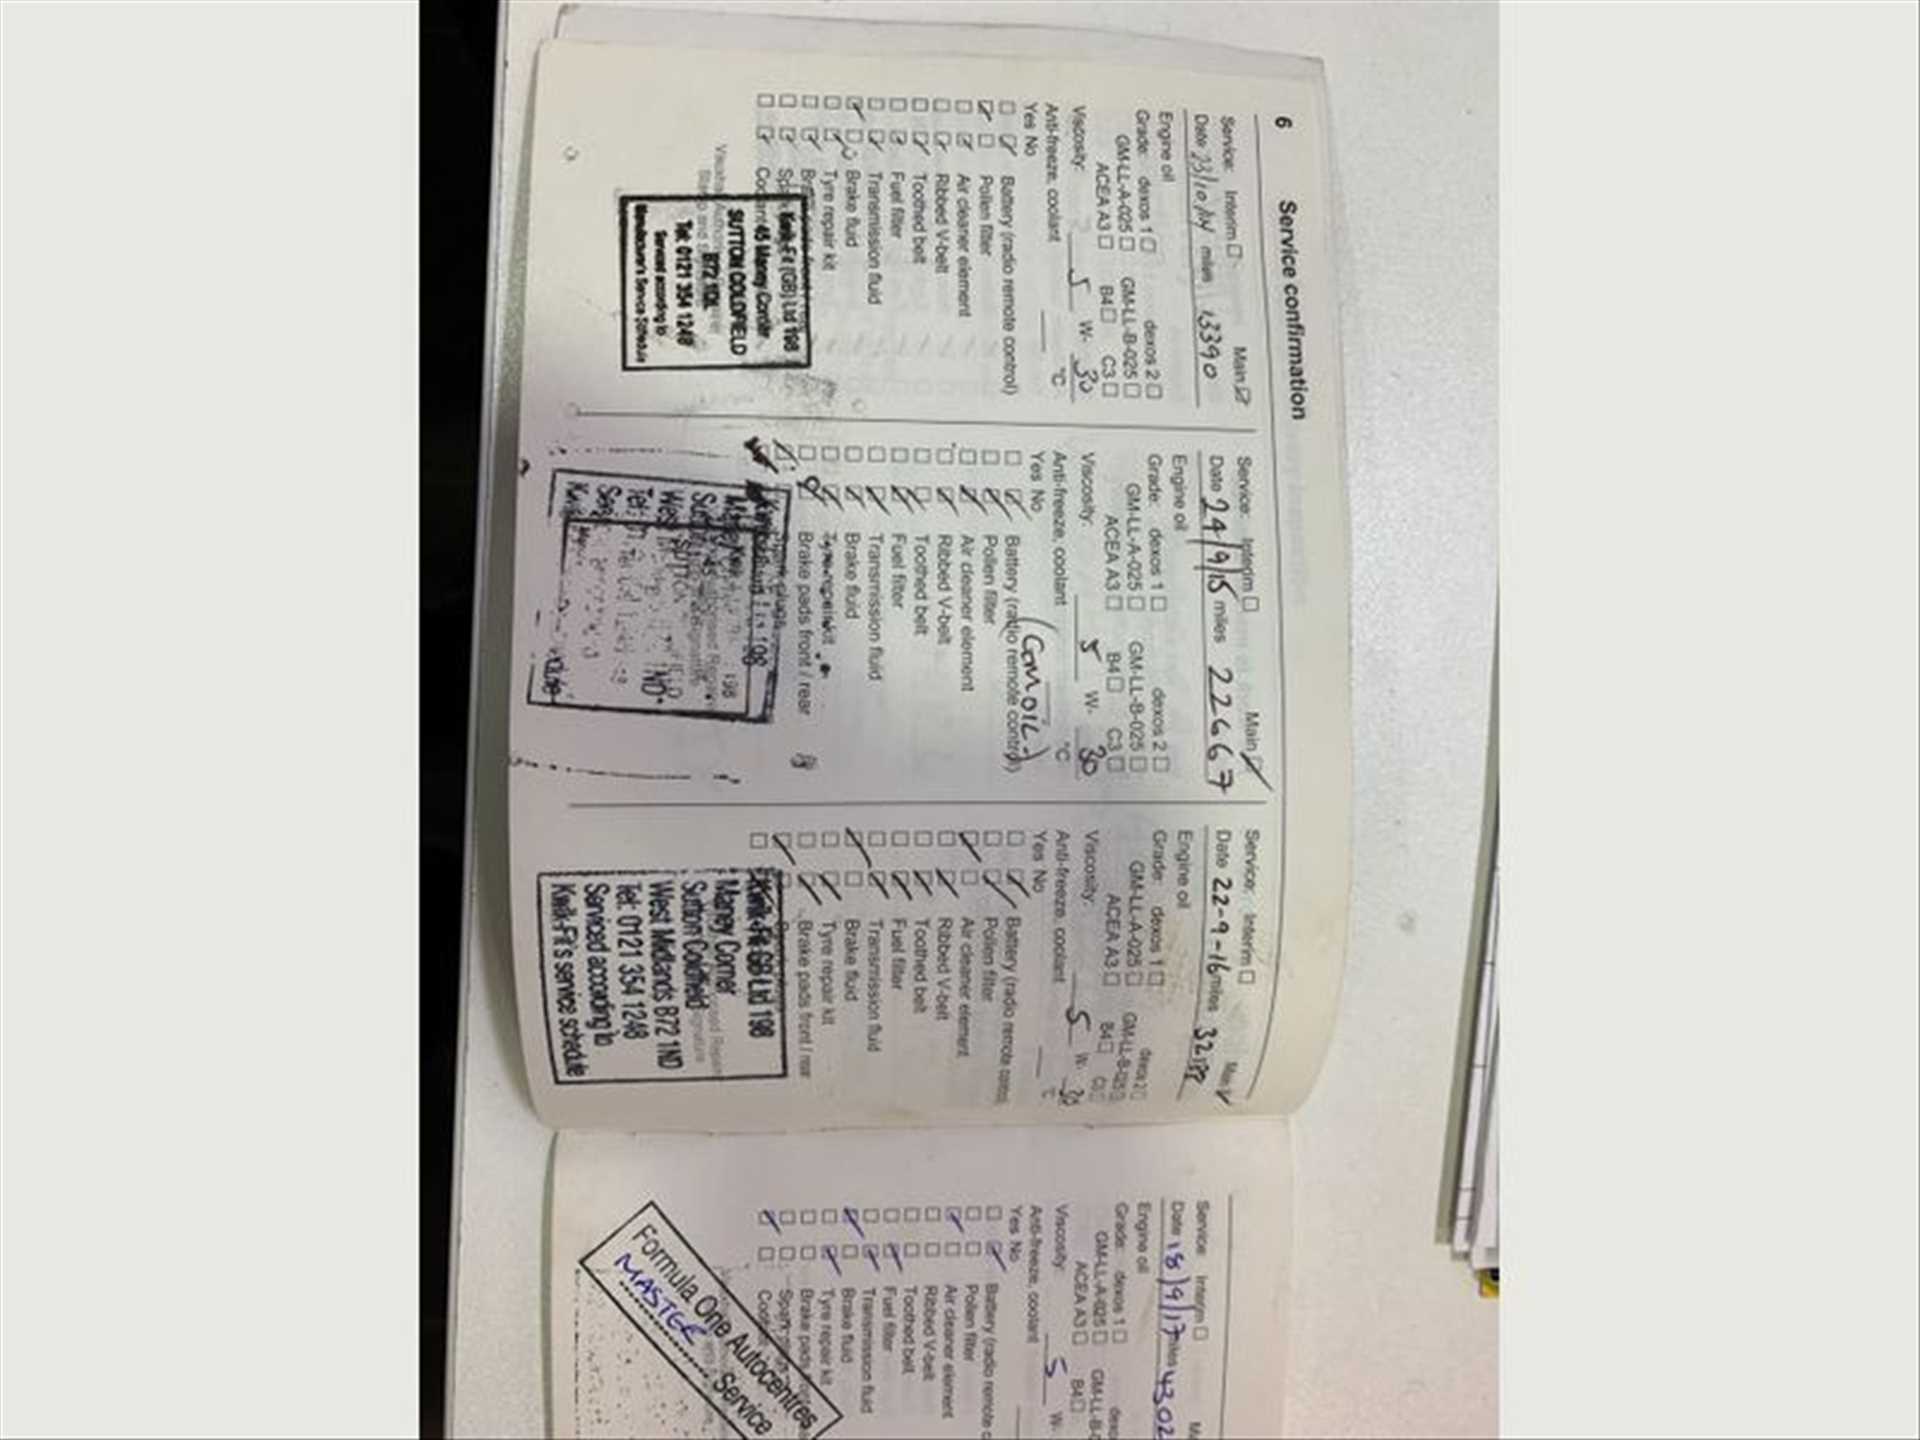 6 Service confirmation
Service: Interim Main
Date 23/10/14 miles 13390
Engine oil
Grade: dexos 1 dexos 2
GM-LL-A-025 GM-LL-B-025
ACEA A3 B4 C3
Viscosity: 5 W- 30
Anti-freeze, coolant °C
Yes No
Battery (radio remote control)
Pollen filter
Air cleaner element
Ribbed V-belt
Toothed belt
Fuel filter
Transmission fluid
Brake fluid
Tyre repair kit
Kwik-Fit (GB) Ltd 198
45 Maney Corner
SUTTON COLDFIELD
B72 1DL
Tel: 0121 354 1248
Serviced according to
Manufacturer's Service Schedule
Service: Interim Main
Date 24/9/15 miles 22667
Engine oil
Grade: dexos 1 dexos 2
GM-LL-A-025 GM-LL-B-025
ACEA A3 B4 C3
Viscosity: 5 W- 30
Anti-freeze, coolant °C
Yes No
(GM OIL)
Battery (radio remote control)
Pollen filter
Air cleaner element
Ribbed V-belt
Toothed belt
Fuel filter
Transmission fluid
Brake fluid
Tyre repair kit
Brake pads front / rear
Service: Interim Main
Date 22-9-16 miles
Engine oil
Grade: dexos 1 dexos 2
GM-LL-A-025 GM-LL-B-025
ACEA A3 B4 C3
Viscosity: 5 W- 30
Anti-freeze, coolant °C
Yes No
Battery (radio remote control)
Pollen filter
Air cleaner element
Ribbed V-belt
Toothed belt
Fuel filter
Transmission fluid
Brake fluid
Tyre repair kit
Brake pads front / rear
Kwik-Fit GB Ltd 198
Maney Corner
Sutton Coldfield
West Midlands B72 1ND
Tel: 0121 354 1248
Serviced according to
Kwik-Fit's service schedule
Service: Interim
Date 18/9/17 miles 4302
Engine oil
Grade: dexos 1
GM-LL-A-025
ACEA A3 B4
Viscosity: 5 W-
Anti-freeze, coolant
Yes No
Battery (radio remote
Pollen filter
Air cleaner element
Ribbed V-belt
Toothed belt
Fuel filter
Transmission fluid
Brake fluid
Tyre repair kit
Brake pads
Formula One Autocentres
MASTER Service